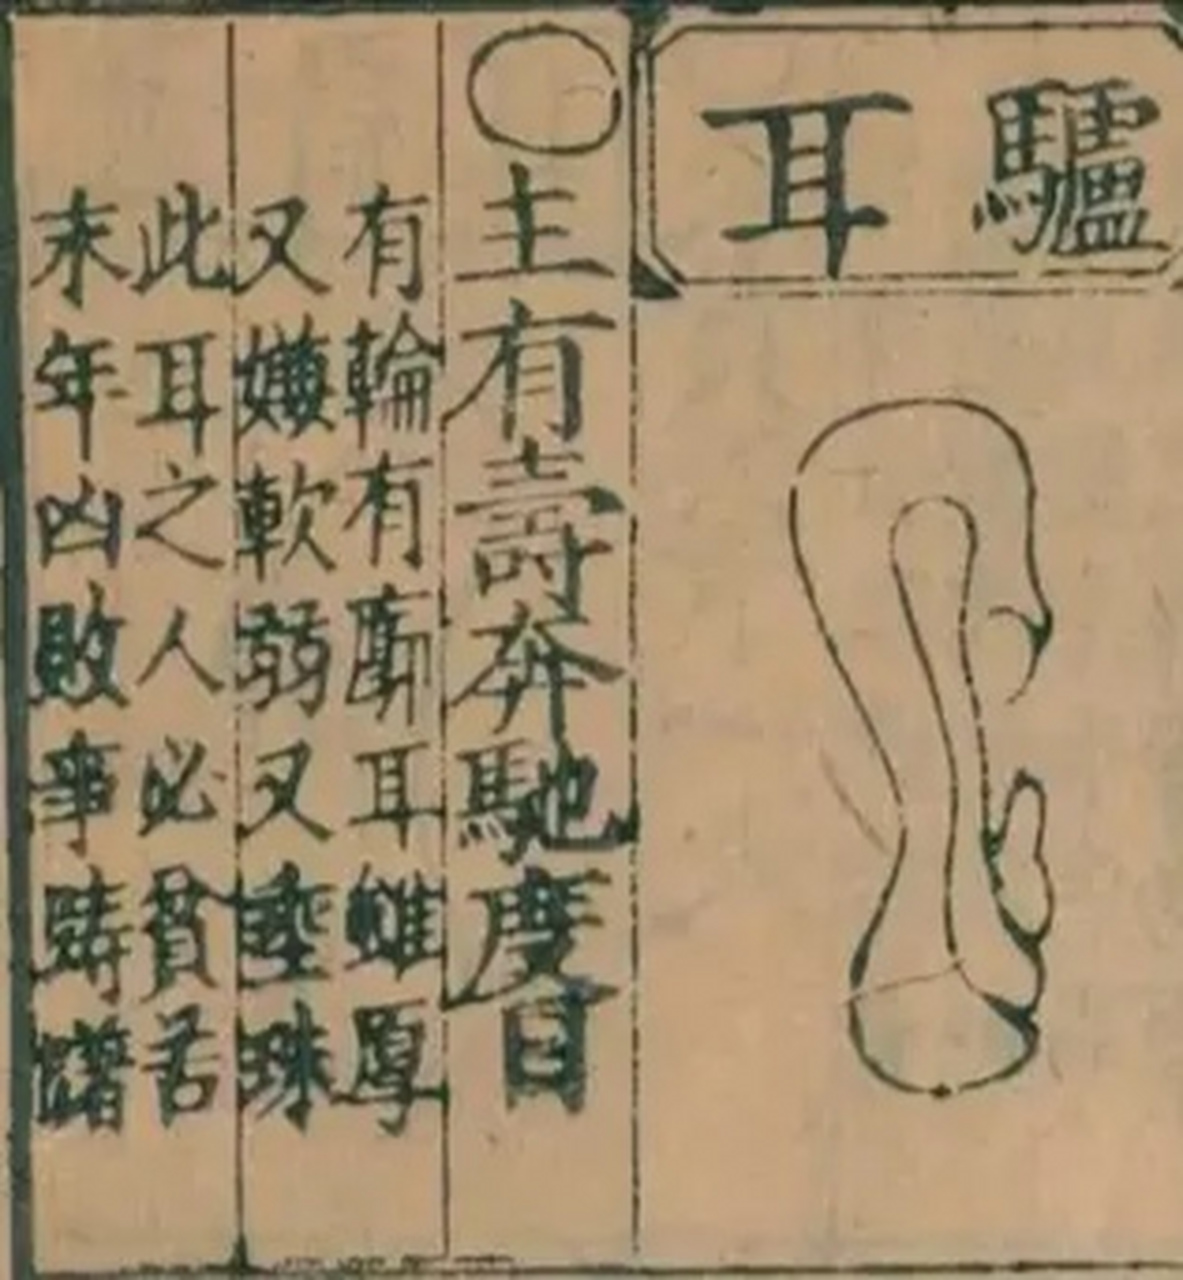 驢耳
主有壽奔馳度日
有輪有廓耳雖厚
又嫌軟弱又垂珠
此耳之人必貧苦
末年凶敗事躊躇